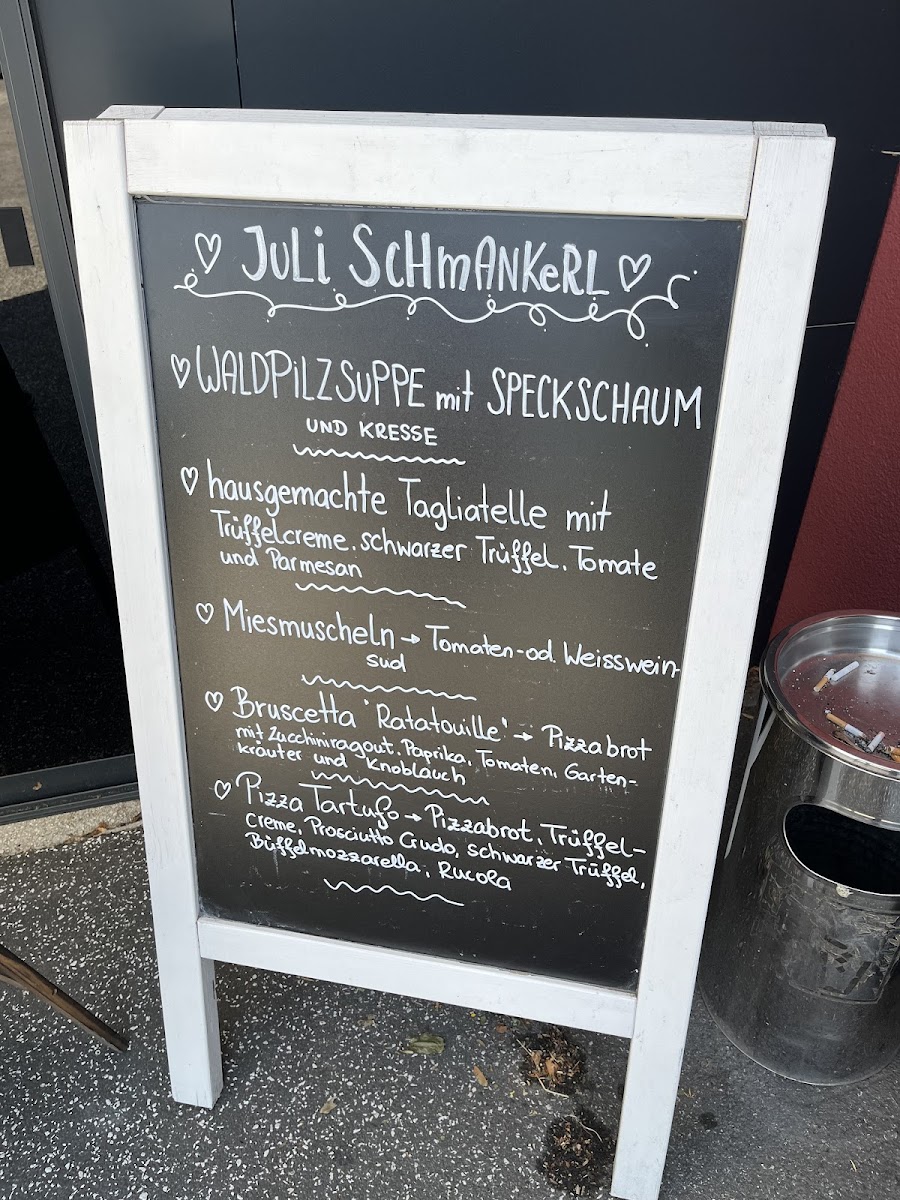 JULi SCHmANKeRL
WALDPiLZSuPPE mit SPECKSCHAUM
UND KRESSE
hausgemachte Tagliatelle mit
Trüffelcreme, schwarzer Trüffel, Tomate
und Parmesan
Miesmuscheln → Tomaten-od. Weisswein-
sud
Bruscetta "Ratatouille" → Pizzabrot
mit Zucchiniragout, Paprika, Tomaten, Garten-
kräuter und Knoblauch
Pizza Tartufo → Pizzabrot, Trüffel-
creme, Prosciutto Crudo, schwarzer Trüffel,
Büffelmozzarella, Rucola